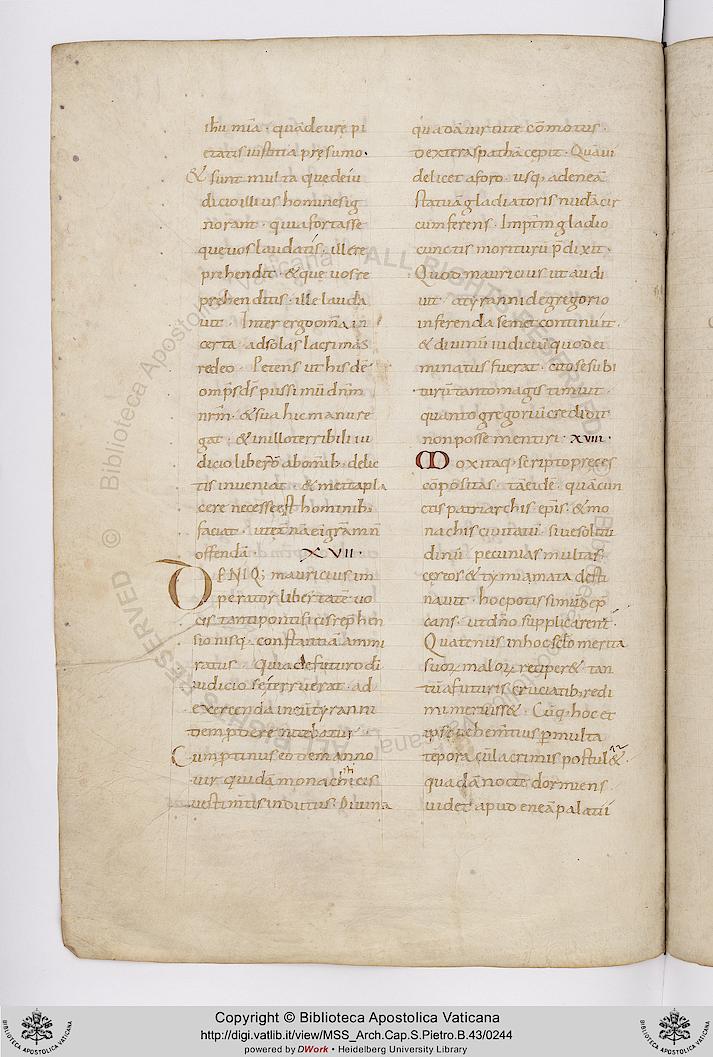 ihū mīa · quādeurę pi
etatis iustitia pręsumo ·
& sunt multa quędeiu
dicio illius hominesig
norant · quia fortasse
quęuos laudatis · ille re
prehendit · & quę uos re
prehenditis · ille lauda
uit · Inter ergo om̄a in
certa · ad solas lacrimas
redeo · Petens ut his dē
omp̄s d̄s piissimū dn̄m
nr̄m · & sua hic manu re
gat · & in illo terribili iu
dicio liberū ab omīb · delic
tis inueniat · & me ita pla
cere necesse est hominib ·
faciat · ut ętā nā ei grām n̄
offendā · XVII ·
DENIQ; mauricius im
perator libertatē uo
cis tanti pontificis rep̄hen
sionisq · constantiā ammi
ratus · Quia de futuro di
iudicio se terruerat · ad
exercendā in eū tyranni
dem p̄dere nitebatur
Cum p̄tinus eodem anno
uir quidā monachicis
uestimtis indutus · Diuina
quadā uirtute cōmotus ·
dextera spathā cępit · Quā ui
delicet a foro · usq · ad eneā
statuā gladiatoris nudā cir
cumferens · Imp̄rm gladio
cunctis moriturū p̄dixit ·
Quod mauricius ut audi
uit · a tyrannide gregorio
inferenda semet continuit ·
& diuinū iudiciū quod ei
minatus fuerat · cito se subi
turū tanto magis timuit ·
quanto gregoriū credidit
non posse mentiri · XVIII ·
Mox itaq · scripto preces
cōpositas · tā eidē · quā cun
ctis patriarchis · ep̄is · & mo
nachis ciuitatū · siue solitu
dinū · pecunias multas ·
cereos & tymiamata desti
nauit · hoc potissimū dep̄
cans · ut dn̄o supplicarent ·
Quatenus in hoc sc̄lo merita
suoꝝ maloꝝ reciper& · tan
tū a futuris cruciatib · redi
mi meruiss& · Cūq · hoc et
ipse uehemtius p multa
tēpora cū lacrimis postular& ·
quadā nocte dormiens ·
uidet apud eneā palatii
Copyright © Biblioteca Apostolica Vaticana
http://digi.vatlib.it/view/MSS_Arch.Cap.S.Pietro.B.43/0244
powered by DWork • Heidelberg University Library